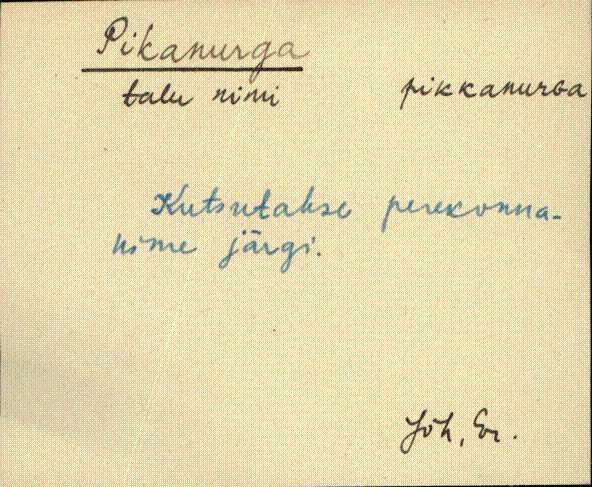 Pikanurga
talu nimi pikkanurga
Kutsutakse perekonna-
nime järgi.
Jõh, Er.